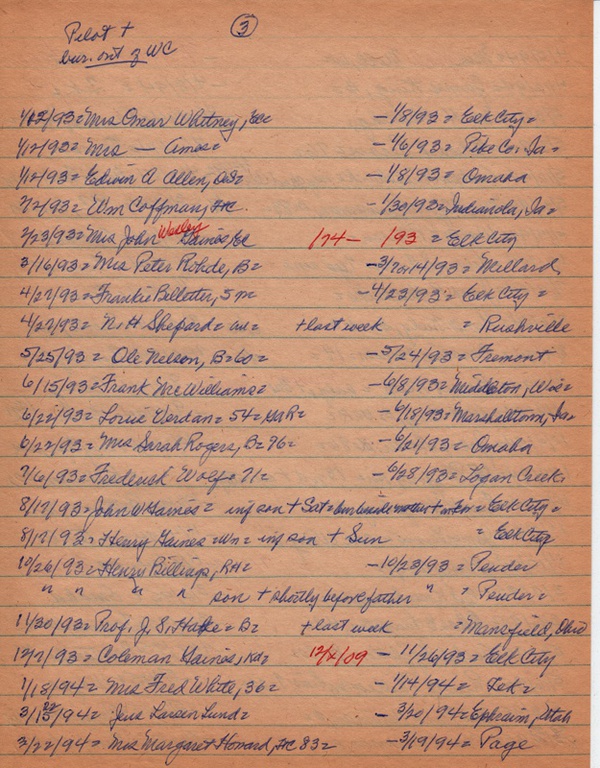 Pilot +
bur. out of WC
3
1/12/93 = Mrs Omar Whitney, Ec - 1/8/93 = Elk City =
1/12/93 = Mrs — Ames = - 1/6/93 = Pike Co, Ia =
1/12/93 = Edwin A Allen, - 1/8/93 = Omaha
2/2/93 = Wm Coffman, HC - 1/30/93 = Indianola, Ia =
2/23/93 = Mrs John Wesley Gaines, Ec 1/74 - 1/93 = Elk City
3/16/93 = Mrs Peter Rohde, B = - 3/7 or 14/93 = Millard
4/27/93 = Frankie Belletter, 5 m = - 4/23/93 = Elk City =
4/27/93 = N. H Shepard = + last week = Rushville
5/25/93 = Ole Nelson, B = 60 = - 5/24/93 = Fremont
6/15/93 = Frank McWilliams = - 6/8/93 = Middleton, Wis =
6/22/93 = Louie Verdan = 54 = GAR = - 6/18/93 = Marshalltown, Ia =
6/22/93 = Mrs Sarah Rogers, B = 96 = - 6/21/93 = Omaha
7/6/93 = Frederick Wolf = 71 = - 6/28/93 = Logan Creek
8/17/93 = John W Gaines = inf son + Sat = bur beside mother + = Elk City =
8/17/93 = Henry Gaines = Wn = inf son + Sun = Elk City
10/26/93 = Henry Billings, RH = - 10/23/93 = Pender
" " " " son + shortly before father " = Pender =
11/30/93 = Prof. J. S. = B = + last week = Mansfield, Ohio
12/7/93 = Coleman Gaines, Kd = 12/x/09 - 11/26/93 = Elk City
1/18/94 = Mrs Fred White, 36 = - 1/14/94 = Tek =
3/22/94 = Jens Larsen Lund = - 3/20/94 = Ephraim, Utah
3/22/94 = Mrs Margaret Howard, HC 83 = - 3/19/94 = Page